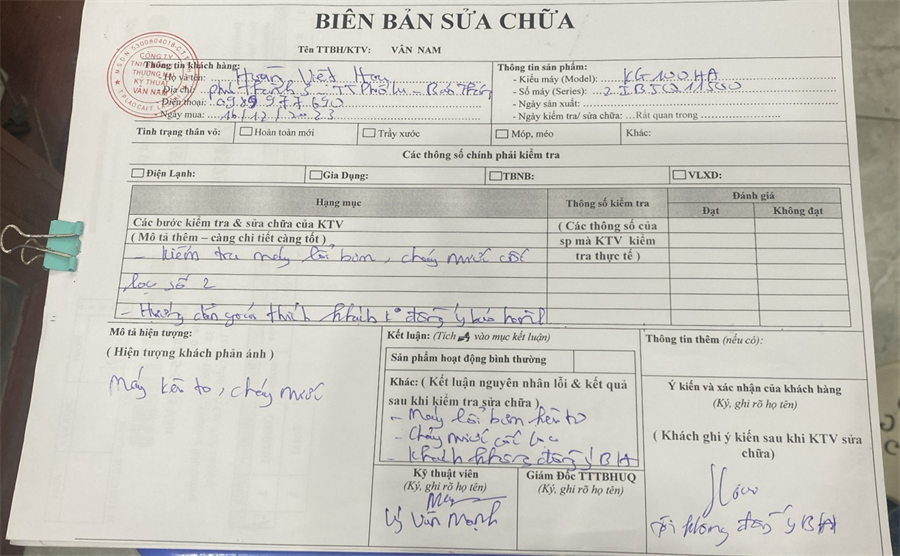 BIÊN BẢN SỬA CHỮA
Tên TTBH/KTV: VÂN NAM
Thông tin khách hàng:
- Họ và tên: Huấn Việt
- Địa chỉ: Phú Thành 3 - TT Phố Lu - Bảo Thắng
- Điện thoại: 0989 977 690
- Ngày mua: 16/12/2023
Thông tin sản phẩm:
- Kiểu máy (Model): KG100HA
- Số máy (Series): 2IB50 11500
- Ngày sản xuất:
- Ngày kiểm tra/ sửa chữa: ...Rất quan trong
M.S.D.N: 5300804018
CÔNG TY
TNHH
THƯƠNG
KỸ THUẬT
VÂN NAM
Tình trạng thân vỏ: Hoàn toàn mới Trầy xước Móp, méo Khác:
Các thông số chính phải kiểm tra
Điện Lạnh: Gia Dụng: TBNB: VLXD:
Hạng mục Thông số kiểm tra Đánh giá
Đạt Không đạt
Các bước kiểm tra & sửa chữa của KTV
( Mô tả thêm – càng chi tiết càng tốt )
( Các thông số của
sp mà KTV kiểm
tra thực tế )
- kiểm tra máy lỗi bơm, chảy nước cốc
lọc số 2
- Hướng dẫn giải thích khách k đồng ý bảo hành
Mô tả hiện tượng:
( Hiện tượng khách phản ánh )
Máy kêu to, chảy nước
Kết luận: (Tích vào mục kết luận)
Sản phẩm hoạt động bình thường
Khác: ( Kết luận nguyên nhân lỗi & kết quả
sau khi kiểm tra sửa chữa )
- Máy lỗi bơm kêu to
- Chảy nước cốc lọc
- Khách không đồng ý BH
Kỹ thuật viên
(Ký, ghi rõ họ tên)
Lý Văn Mạnh
Giám Đốc TTTBHUQ
(Ký, ghi rõ họ tên)
Thông tin thêm (nếu có):
Ý kiến và xác nhận của khách hàng
(Ký, ghi rõ họ tên)
( Khách ghi ý kiến sau khi KTV sửa
chữa)
Tôi không đồng ý BH